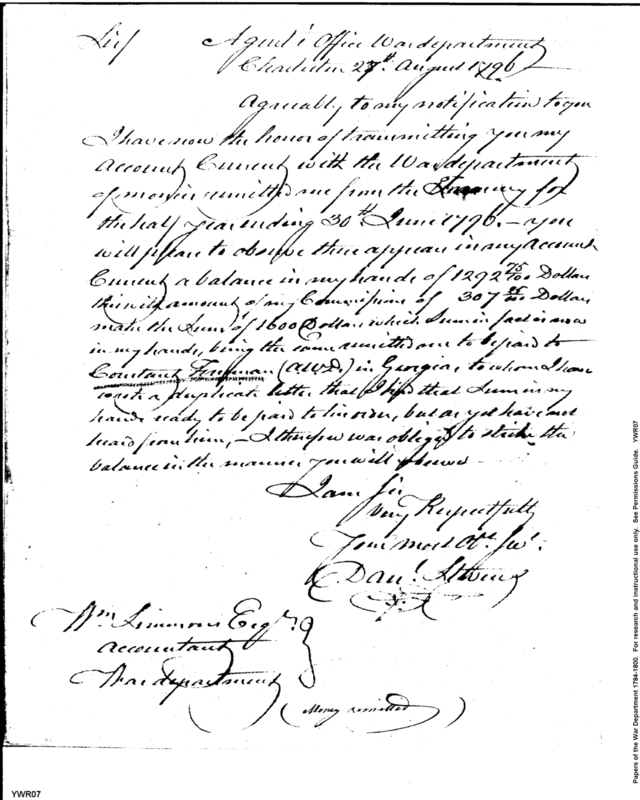 Sir/ Agent's Office War department
Charleston 27th. August 1796
Agreeably to my notification to you
I have now the honor of transmitting you my
Account Current with the War department
of monies remitted me from the Treasury for
the half year ending 30th. June 1796. – you
will please to observe there appears in my Account
Current a balance in my hands of 1292 75/100 Dollars
this with amount of my Commissions of 307 25/100 Dollars
make the Sum of 1600 Dollars which Sum in fact is now
in my hands, being the same remitted me to be paid to
Constant Freeman (AWD.) in Georgia, to whom I have
wrote a duplicate letter that I had that Sum in my
hands ready to be paid to his order, but as yet have not
heard from him, – I therefore was obliged to strike the
balance in the manner you will observe
I am Sir
Very Respectfully
Your most Obt. Servt.
Danl. Stevens
Wm. Simmons Esqr.
Accountant
War department
(Money remitted)
YWR07
Papers of the War Department 1784-1800. For research and instructional use only. See Permissions Guide. YWR07